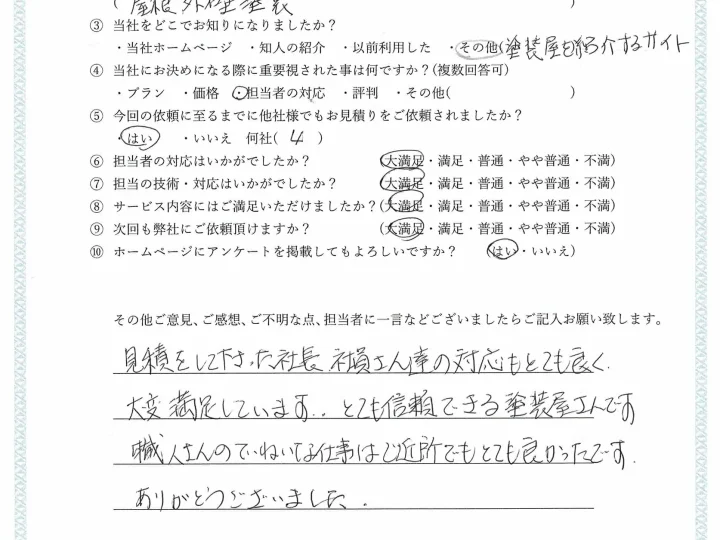 (屋根 外壁塗装 )
③ 当社をどこでお知りになりましたか?
・当社ホームページ ・知人の紹介 ・以前利用した ・その他(塗装屋を紹介するサイト
④ 当社にお決めになる際に重要視された事は何ですか?(複数回答可)
・プラン ・価格 ・担当者の対応 ・評判 ・その他( )
⑤ 今回の依頼に至るまでに他社様でもお見積りをご依頼されましたか?
・はい ・いいえ 何社( 4 )
⑥ 担当者の対応はいかがでしたか? (大満足・満足・普通・やや普通・不満)
⑦ 担当の技術・対応はいかがでしたか? (大満足・満足・普通・やや普通・不満)
⑧ サービス内容にはご満足いただけましたか?(大満足・満足・普通・やや普通・不満)
⑨ 次回も弊社にご依頼頂けますか? (大満足・満足・普通・やや普通・不満)
⑩ ホームページにアンケートを掲載してもよろしいですか? (はい・いいえ)
その他ご意見、ご感想、ご不明な点、担当者に一言などございましたらご記入お願い致します。
見積をして下さった社長、社員さん達の対応もとても良く、
大変満足しています。. とても信頼できる塗装屋さんです
職人さんのていねいな仕事はご近所でもとても良かったです.
ありがとうございました.